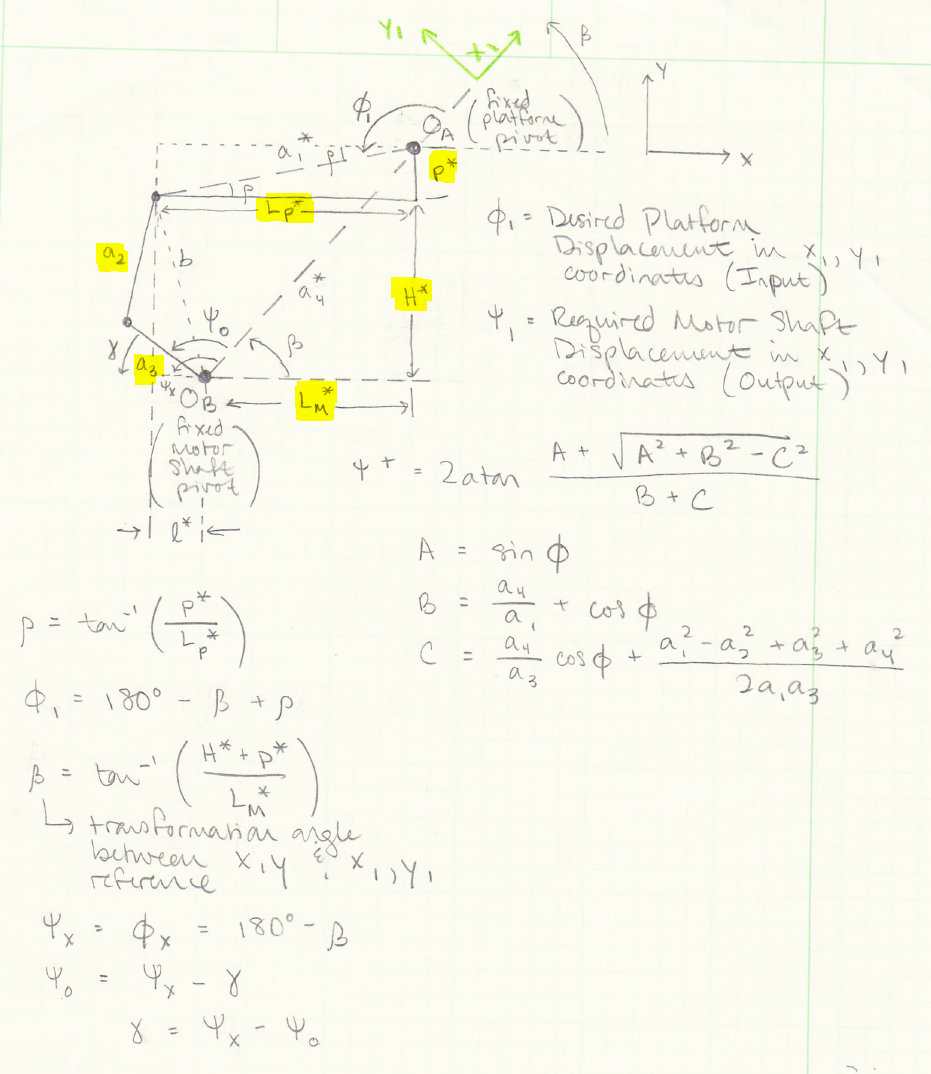 Y₁
X₁
β
Y
X
ϕ₁
O_A
(fixed platform pivot)
a₁*
ρ
P*
ρ
L_P*
a₂
b
a₄*
H*
ψ₀
β
γ
a₃
ψₓ
O_B
L_M*
(fixed Motor Shaft pivot)
l*
ϕ₁ = Desired Platform
Displacement in X₁, Y₁
coordinates (Input)
ψ₁ = Required Motor Shaft
Displacement in X₁, Y₁
coordinates (Output)
ψ⁺ = 2atan (A + √(A² + B² - C²)) / (B + C)
A = sin ϕ
B = a₄/a₁ + cos ϕ
C = a₄/a₃ cos ϕ + (a₁² - a₂² + a₃² + a₄²) / 2a₁a₃
ρ = tan⁻¹ (P* / L_P*)
ϕ₁ = 180° - β + ρ
β = tan⁻¹ ((H* + P*) / L_M*)
↳ transformation angle
between X,Y & X₁,Y₁
reference
ψₓ = ϕₓ = 180° - β
ψ₀ = ψₓ - γ
γ = ψₓ - ψ₀